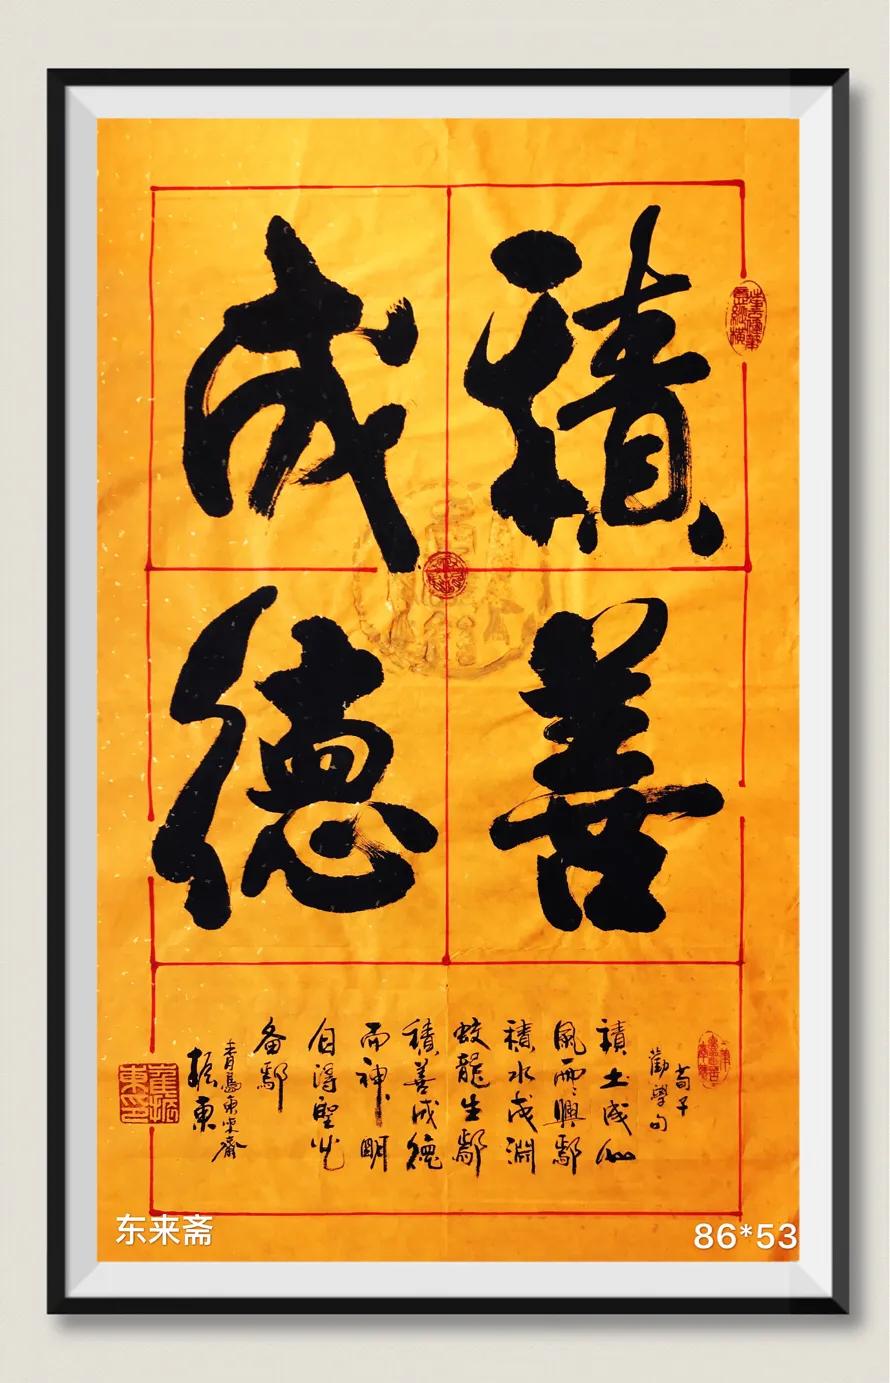 積善
成德
荀子
勸學句
積土成山
風雨興鄢
積水成淵
蛟龍生鄢
積善成德
而神明
自得聖心
备鄢
青島東來齋
振東
东来斋
86*53